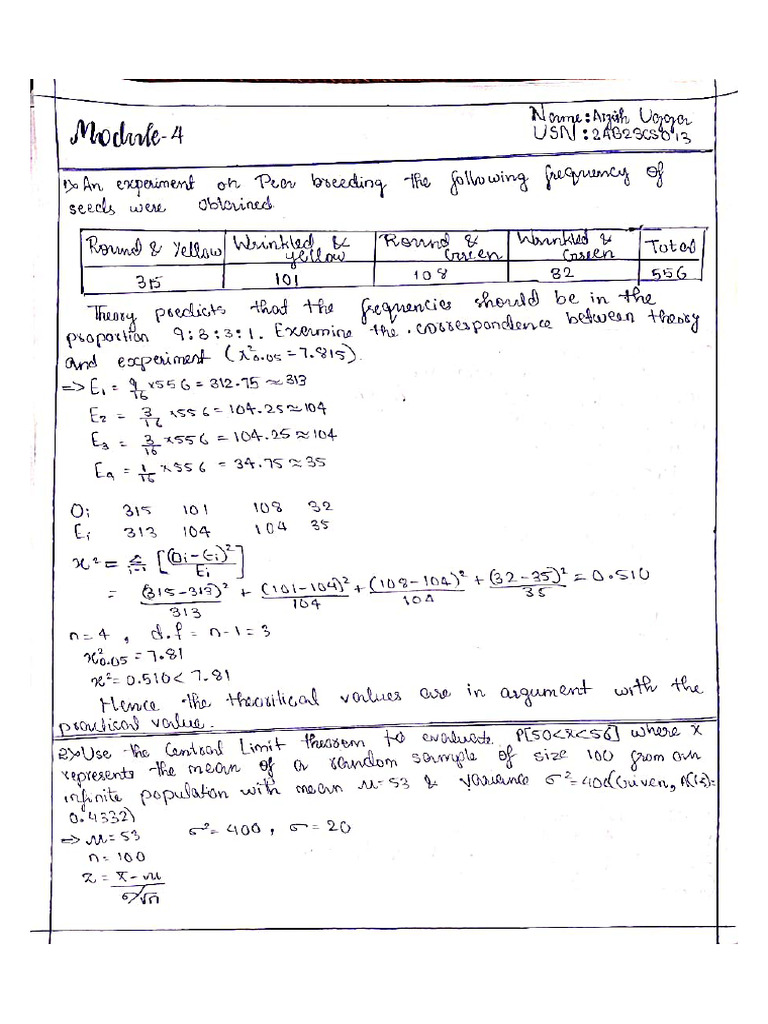 Module-4
Name: Arjah Uppar
USN: 2AB23CS013
1> An experiment on Pear breeding the following frequency of
seeds were obtained.
Round & Yellow Wrinkled & yellow Round & Green Wrinkled & Green Total
315 101 108 32 556
Theory predicts that the frequencies should be in the
proportion 9:3:3:1. Examine the correspondence between theory
and experiment (x²0.05 = 7.815).
=> E₁ = 9/16 × 556 = 312.75 ≈ 313
E₂ = 3/16 × 556 = 104.25 ≈ 104
E₃ = 3/16 × 556 = 104.25 ≈ 104
E₄ = 1/16 × 556 = 34.75 ≈ 35
Oi 315 101 108 32
Ei 313 104 104 35
x² = Σ i=1 [(Oi-Ei)²/Ei]
= (315-313)²/313 + (101-104)²/104 + (108-104)²/104 + (32-35)²/35 = 0.510
n=4 , d.f = n-1 = 3
x²0.05 = 7.81
x² = 0.510 < 7.81
Hence the theoritical values are in argument with the
practical value.
2> Use the Central Limit theorem to evaluate P[50<x<56] where x
represents the mean of a random sample of size 100 from an
infinite population with mean μ=53 & variance σ²=400 (Given,
0.4332)
=> μ=53 σ²=400 , σ=20
n=100
z = x̄-μ / σ/√n